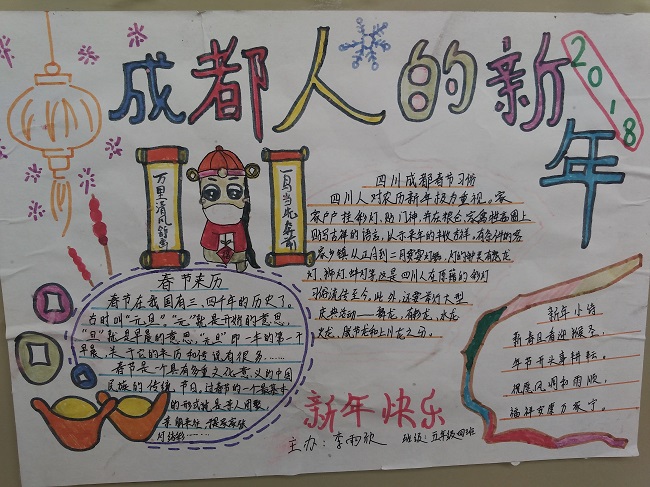 成都人的新年
2018
万里清风
四川成都春节习俗
四川人对农历新年极为重视。家
家户户挂彩灯、贴门神,并在
贴写吉祥的语言,以示来年的丰收吉祥。有条件的
乡镇从正月到二月要耍灯
灯、狮灯、牛灯等这是四川人在
习俗流传至今。此外,还要举行大型
庆典活动——舞龙、有彩龙、水龙
火龙、板凳龙和上川龙之分。
春节来历
春节在我国有三、四千年的历史了。
古时叫“元旦”。“元”就是开始的意思,
“旦”就是早晨的意思,“元旦”即一年的第一个
早晨,关于它的来历和传说有很多……
春节是一个具有多重文化意义的中国
民族的传统节日,过春节的一个最基本
的形式就是亲人团聚,
新年小诗
新春且看迎猴至,
年节开头喜
祝愿风调和雨顺,
福祥安康万家宁。
新年快乐
主办:李雨欣 班级:五年级四班